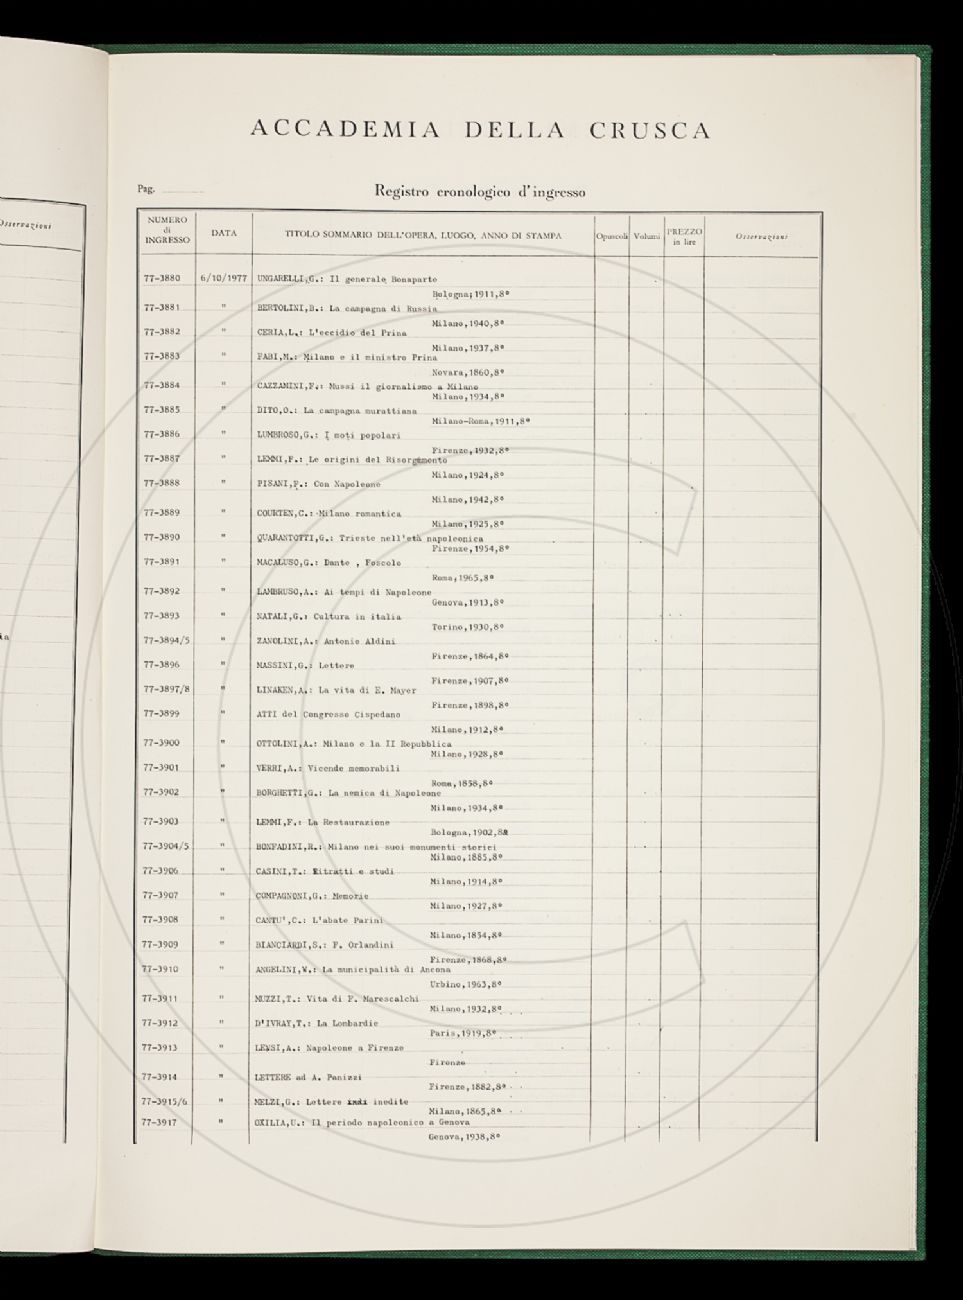 Osservazioni
ia
ACCADEMIA DELLA CRUSCA
Pag.
Registro cronologico d'ingresso
NUMERO di INGRESSO DATA TITOLO SOMMARIO DELL'OPERA, LUOGO, ANNO DI STAMPA Opuscoli Volumi PREZZO in lire Osservazioni
77-3880 6/10/1977 UNGARELLI,G.: Il generale Bonaparte
Bologna;1911,8°
77-3881 " BERTOLINI,B.: La campagna di Russia
Milano,1940,8°
77-3882 " CERIA,L.: L'eccidio del Prina
Milano,1937,8°
77-3883 " FABI,M.: Milano e il ministro Prina
Novara,1860,8°
77-3884 " CAZZAMINI,F.: Mussi il giornalismo a Milano
Milano,1934,8°
77-3885 " DITO,O.: La campagna murattiana
Milano-Roma,1911,8°
77-3886 " LUMBROSO,G.: I moti popolari
Firenze,1932,8°
77-3887 " LEMMI,F.: Le origini del Risorgimento
Milano,1924,8°
77-3888 " PISANI,F.: Con Napoleone
Milano,1942,8°
77-3889 " COURTEN,C.: Milano romantica
Milano,1925,8°
77-3890 " QUARANTOTTI,G.: Trieste nell'età napoleonica
Firenze,1954,8°
77-3891 " MACALUSO,G.: Dante , Foscolo
Roma,1965,8°
77-3892 " LAMBRUSO,A.: Ai tempi di Napoleone
Genova,1913,8°
77-3893 " NATALI,G.: Cultura in italia
Torino,1930,8°
77-3894/5 " ZANOLINI,A.: Antonio Aldini
Firenze,1864,8°
77-3896 " MASSINI,G.: Lettere
Firenze,1907,8°
77-3897/8 " LINAKEN,A.: La vita di E. Mayer
Firenze,1898,8°
77-3899 " ATTI del Congresso Cispadano
Milano,1912,8°
77-3900 " OTTOLINI,A.: Milano e la II Repubblica
Milano,1928,8°
77-3901 " VERRI,A.: Vicende memorabili
Roma,1858,8°
77-3902 " BORGHETTI,G.: La nemica di Napoleone
Milano,1934,8°
77-3903 " LEMMI,F.: La Restaurazione
Bologna,1902,8°
77-3904/5 " BONFADINI,R.: Milano nei suoi monumenti storici
Milano,1885,8°
77-3906 " CASINI,T.: Ritratti e studi
Milano,1914,8°
77-3907 " COMPAGNONI,G.: Memorie
Milano,1927,8°
77-3908 " CANTU',C.: L'abate Parini
Milano,1854,8°
77-3909 " BIANCIARDI,S.: F. Orlandini
Firenze,1868,8°
77-3910 " ANGELINI,W.: La municipalità di Ancona
Urbino,1963,8°
77-3911 " MUZZI,T.: Vita di F. Marescalchi
Milano,1932,8°
77-3912 " D'IVRAY,T.: La Lombardie
Paris,1919,8°
77-3913 " LENSI,A.: Napoleone a Firenze
Firenze
77-3914 " LETTERE ad A. Panizzi
Firenze,1882,8°
77-3915/6 " MELZI,G.: Lettere inedite
Milano,1865,8°
77-3917 " OXILIA,U.: Il periodo napoleonico a Genova
Genova,1938,8°